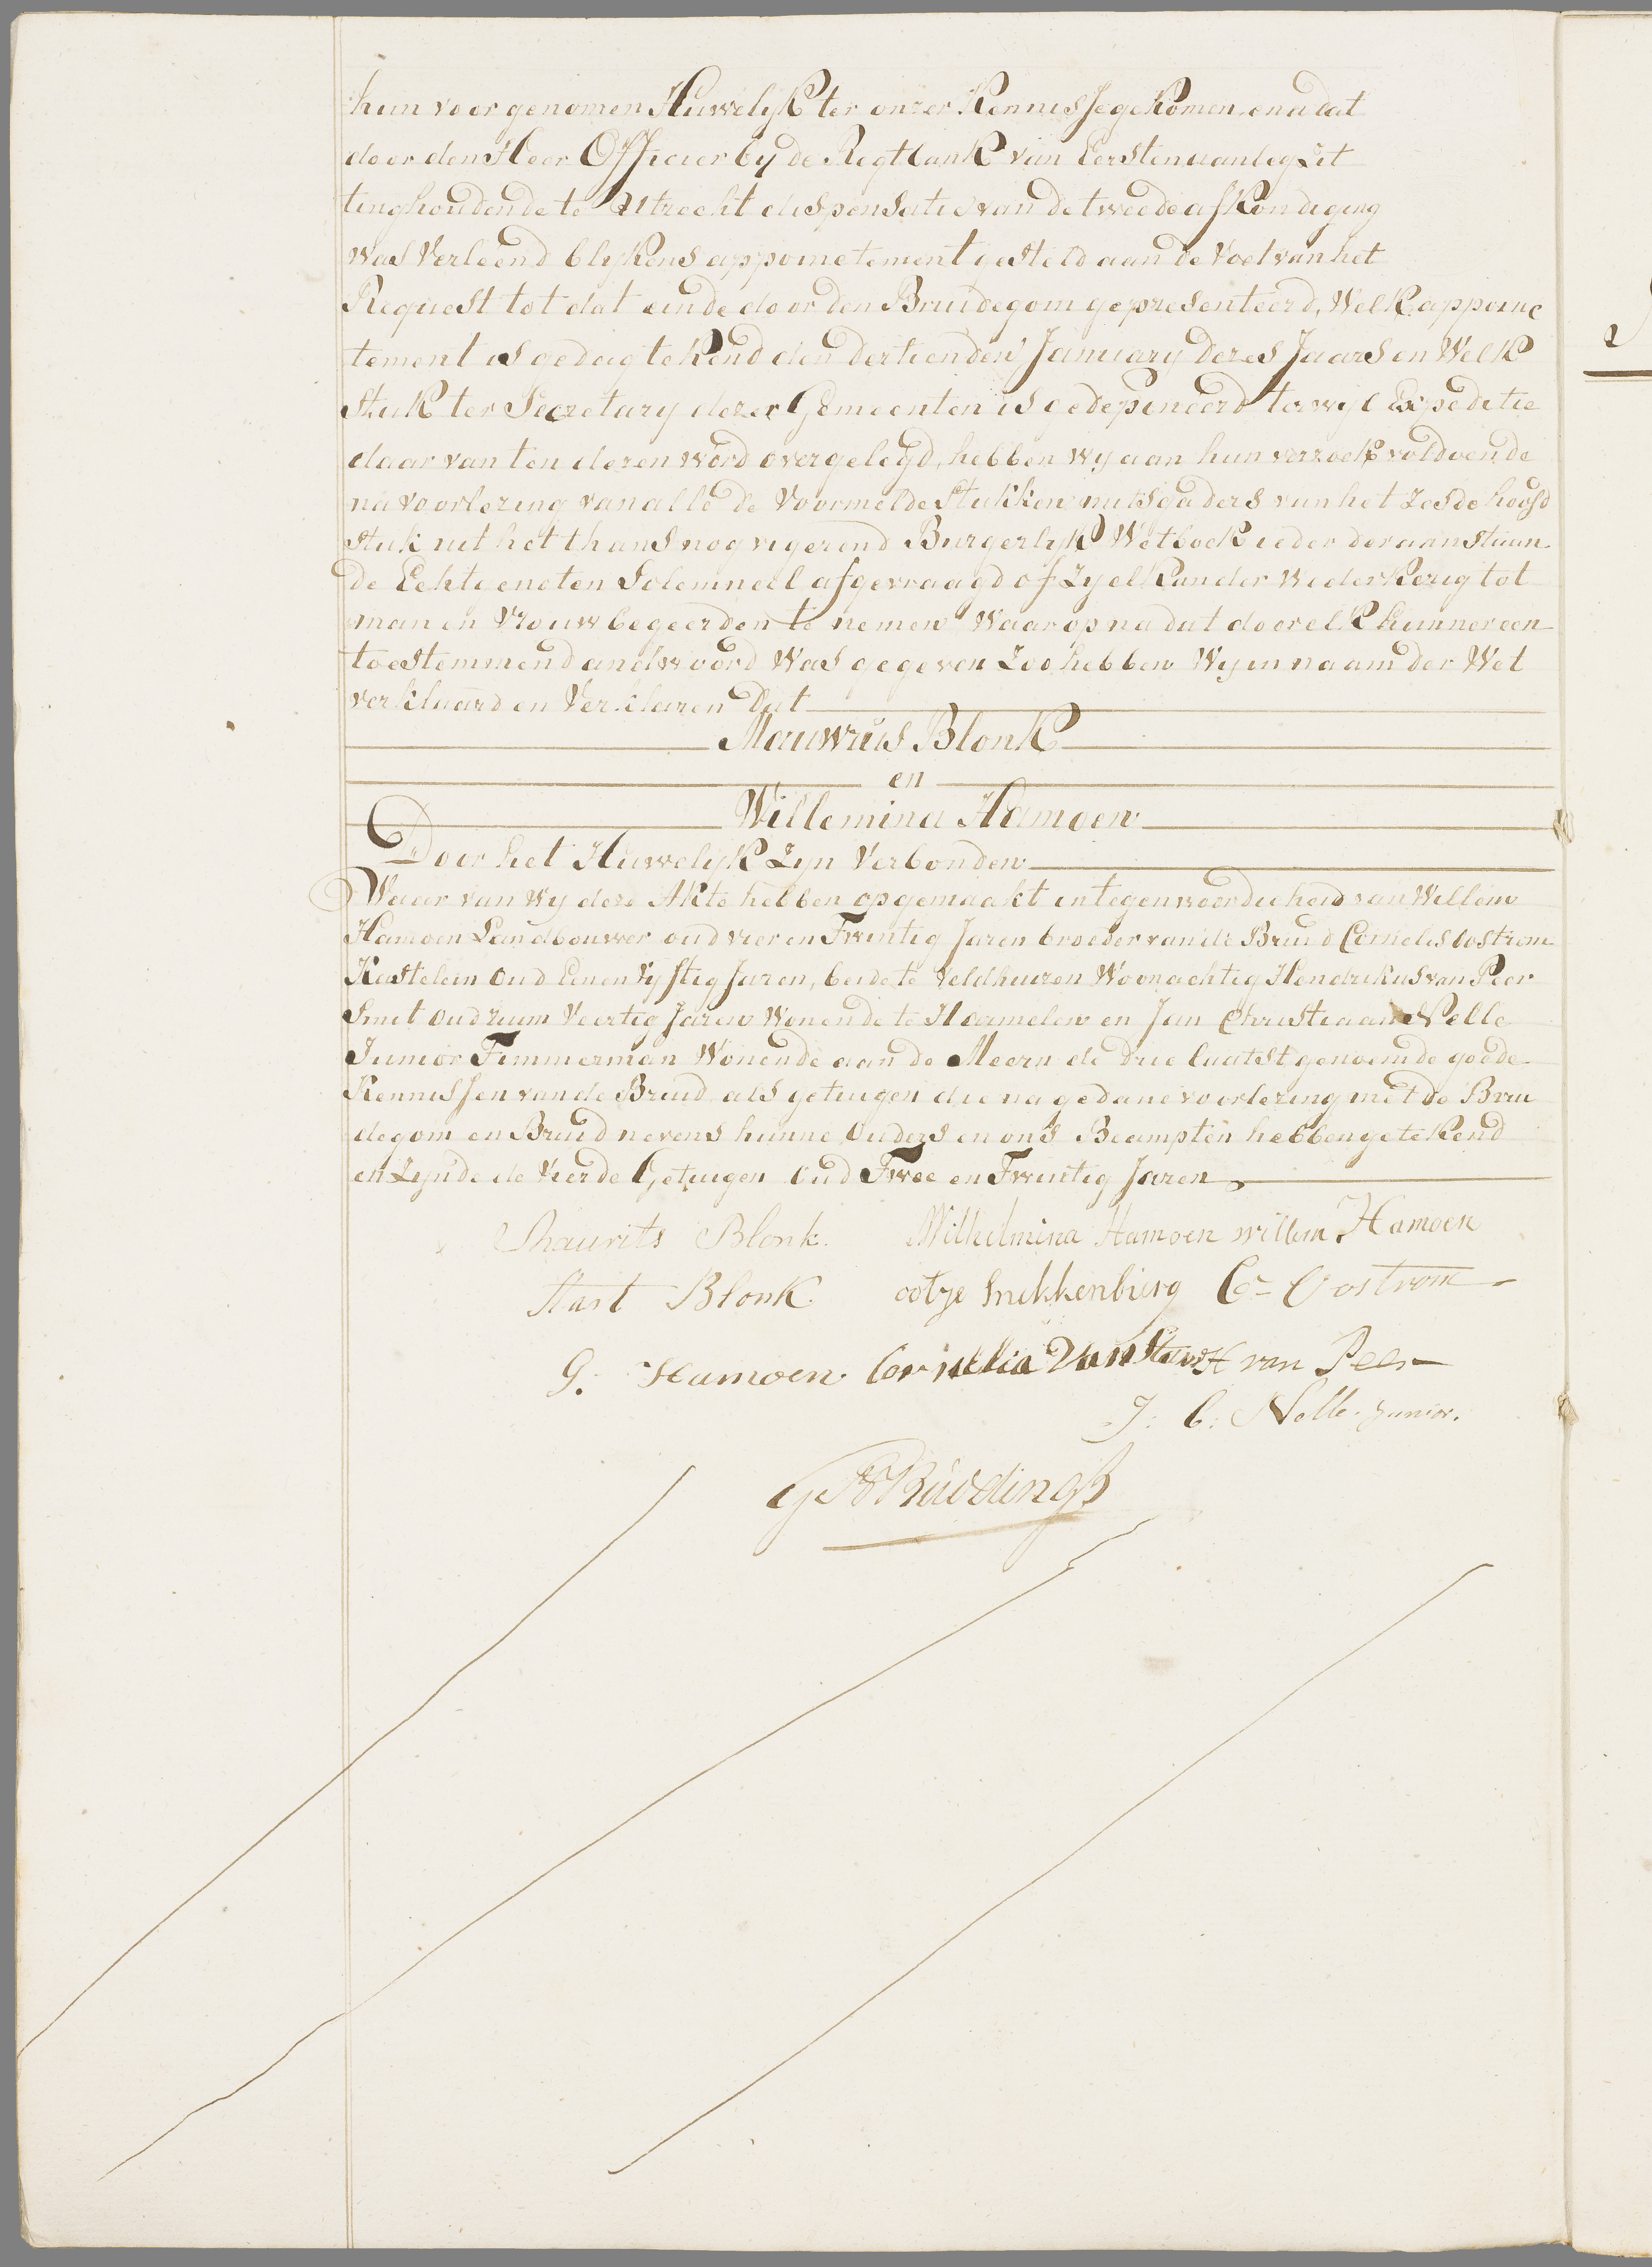 hun voorgenomen Huwelijk ter onzer Kennisse gekomen, en nadat
door den Heer Officier by de Regtbank van Eersten aanleg Zit
tinghoudende te Utrecht dispensatie van de tweede afkondiging
was Verleend blykens appoinctement gesteld aan de Voet van het
Request tot dat einde door den Bruidegom gepresenteerd, Welk appoinc
tement is gedagtekend den dertienden January dezes Jaars en Welk
Stuk ter Secretary dezer Gemeenten is gedeponeerd terwyl Expeditie
daar van ten dezen word overgelegd, hebben wy aan hun verzoek voldoende
na voorlezing van alle de Voormelde Stukken mitsgaders van het Zesde hoofd
stuk uit het thans nog vigerend Burgerlyk Wetboek ieder der aanstaan
de Echtgenoten Solemneel afgevraagd of Zy elkander Wederkerig tot
man en Vrouw begeerden te nemen Waarop nadat door elk hunner een
toestemmend andwoord Was gegeven Zoo hebben Wy in naam der Wet
verklaard en Verklaren Dat
Mauwrus Blonk
en
Willemina Hamoen
Door het Huwelijk Zyn Verbonden
Waar van Wy deze Akte hebben opgemaakt in tegenwoordicheid van Willem
Hamoen Landbouwer oud vier en Twintig Jaren broeder van de Bruid Cornelis Oostrom
Kastelein Oud Een en Vyftig Jaren, beide te Veldhuizen Woonachtig Hendrikus van Peer
Smit Oud ruim Veertig Jaren Wonende te Haarmelen en Jan Christiaan Nelle
Junior Timmerman Wonende aan de Meern de drie laatst genoemde goede
Kennissen van de Bruid als getuigen die na gedane voorlezing met de Brui
degom en Bruid nevens hunne Ouders en ons Beampten hebben getekend
en Zynde de Vierde Getuigen Oud Twee en Twintig Jaren
Maurits Blonk. Wilhelmina Hamoen willem Hamoen
Aart Blonk. ootje Snikkenburg Cs Oostrom
G. Hamoen. Cornelia van H van Peer
J: C: Nelle. Junior.